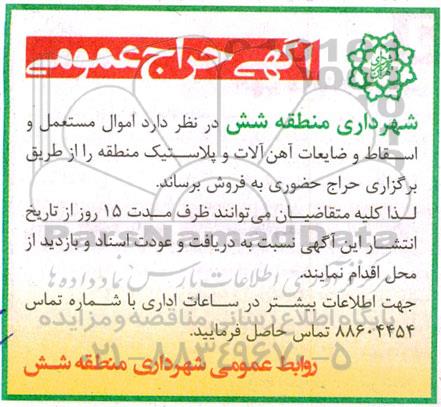 آگهی حراج عمومی
شهرداری منطقه شش در نظر دارد اموال مستعمل و
اسقاط و ضایعات آهن آلات و پلاستیک منطقه را از طریق
برگزاری حراج حضوری به فروش برساند.
لذا کلیه متقاضیان می‌توانند ظرف مدت ۱۵ روز از تاریخ
انتشار این آگهی نسبت به دریافت و عودت اسناد و بازدید از
محل اقدام نمایند.
ParsNamadData
مرکز فرآوری اطلاعات پارس نماد داده ها
جهت اطلاعات بیشتر در ساعات اداری با شماره تماس
پایگاه اطلاع رسانی مناقصه و مزایده
۸۸۶۰۴۴۵۴ تماس حاصل فرمایید.
۰۲۱-۸۸۳۴۹۶۷۰-۵
روابط عمومی شهرداری منطقه شش